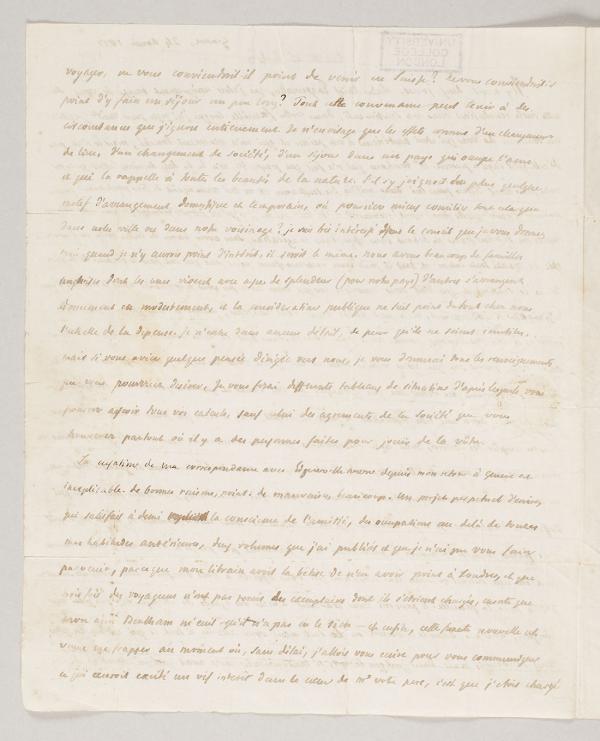 voyager, ne vous conviendroit-il point de venir en Suisse? Ne vous conviendroit-il
point d'y faire un séjour un peu long? Toute cette convenance peut tenir à des
circonstances que j'ignore entièrement. Je n'envisage que les effets connus d'un changement
de lieu, d'un changement de société, d'un séjour dans un pays qui occupe l'ame
et qui la rappelle à toutes les beautés de la nature. S'il s'y joignoit de plus quelque
motif d'arrangement domestique et temporaire, où pourriez mieux concilier tout cela que
dans notre ville ou dans notre voisinage? je suis très intéressé dans le conseil que je vous donne,
mais quand je n'y aurois point d'intérêt, il seroit le même. nous avons beaucoup de familles
angloises dont les unes vivent avec assez de splendeur (pour notre pays) d'autres s'arrangent
très modestement, et la considération publique ne suit point du tout chez nous
l'échelle de la depense. je n'entre dans aucun détail, de peur qu'ils ne soient inutiles.
mais si vous aviez quelque pensée dirigée vers nous, je vous donnerai tous les renseignements
que vous pourriez désirer. Je vous ferai differents tableaux de situations d'après lesquels vous
pourriez asseoir tous vos calculs, sauf celui des agréments de la société que vous
trouverez partout où il y a des personnes faites pour jouir de la vôtre.
La cessation de ma correspondance avec depuis mon retour à Genève est
inexplicable. de bonnes raisons, point. de mauvaises, beaucoup. Un projet perpetuel d'écrire,
qui satisfait à demi la conscience de l'amitié, des occupations au delà de toutes
mes habitudes antérieures, deux volumes que j'ai publiés et que je n'ai pu vous faire
parvenir, parce que mon libraire avoit la bêtise de n'en avoir point à Londres, et que
trois fois des voyageurs n'ont pas remis des exemplaires dont ils s'étoient chargés, ensorte que
notre ami Bentham n'eut qu'il n'a pas eu le sien — et enfin, cette funeste nouvelle est
venue me frapper au moment où, sans délai, j'allois vous écrire pour vous communiquer
ce qui auroit excité un vif intérêt dans le cœur de mr votre pere, c'est que j'étois chargé
UNIVERSITY
COLLEGE
LONDON